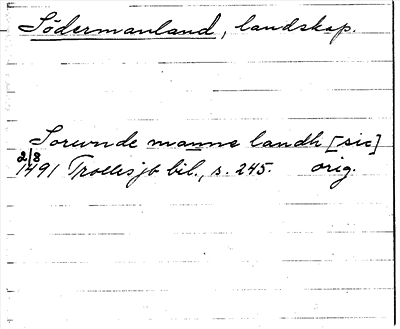 Södermanland, landskap.
Sorunde manne landh [sic]
2/8 1491 bil., s. 245. orig.